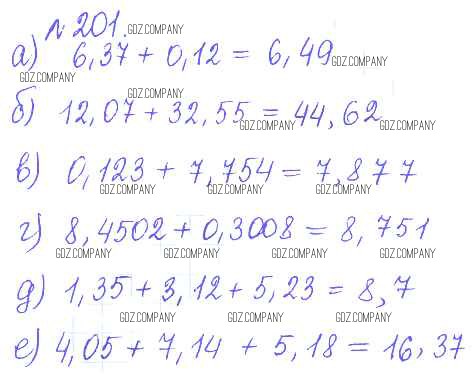 № 201. GDZ.COMPANY
а) 6,37 + 0,12 = 6,49 GDZ.COMPANY
GDZ.COMPANY GDZ.COMPANY
б) 12,07 + 32,55 = 44,62
GDZ.COMPANY GDZ.COMPANY
в) 0,123 + 7,754 = 7,877
GDZ.COMPANY GDZ.COMPANY GDZ.COMPANY
г) 8,4502 + 0,3008 = 8,751
GDZ.COMPANY GDZ.COMPANY GDZ.COMPANY GDZ.COMPANY
д) 1,35 + 3,12 + 5,23 = 8,7
GDZ.COMPANY GDZ.COMPANY GDZ.COMPANY
е) 4,05 + 7,14 + 5,18 = 16,37
GDZ.COMPANY GDZ.COMPANY GDZ.COMPANY